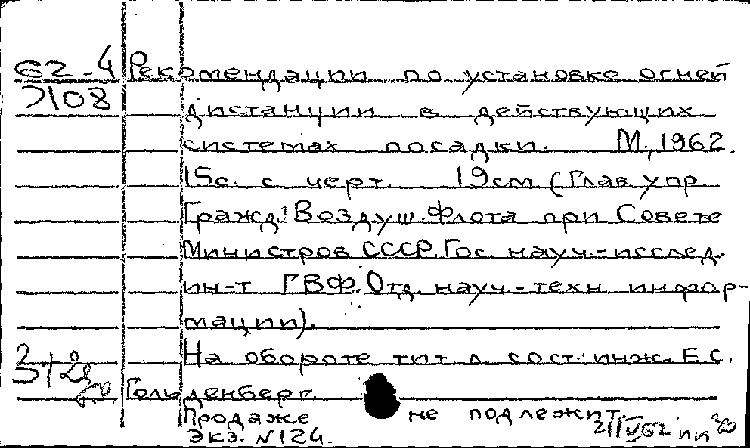 62-4 Рекомендации по установке огней
7108 дистанции в действующих
системах посадки. М, 1962.
15с. с черт. 19см (Глав. упр.
Гражд. Воздуш. Флота при Совете
Министров СССР. Гос. науч.-исслед.
ин-т ГВФ. Отд. науч.-техн. инфор-
мации).
На обороте тит. л. сост: инж. Е.С.
Гольденберг.
Продаже не подлежит.
Экз. №124.